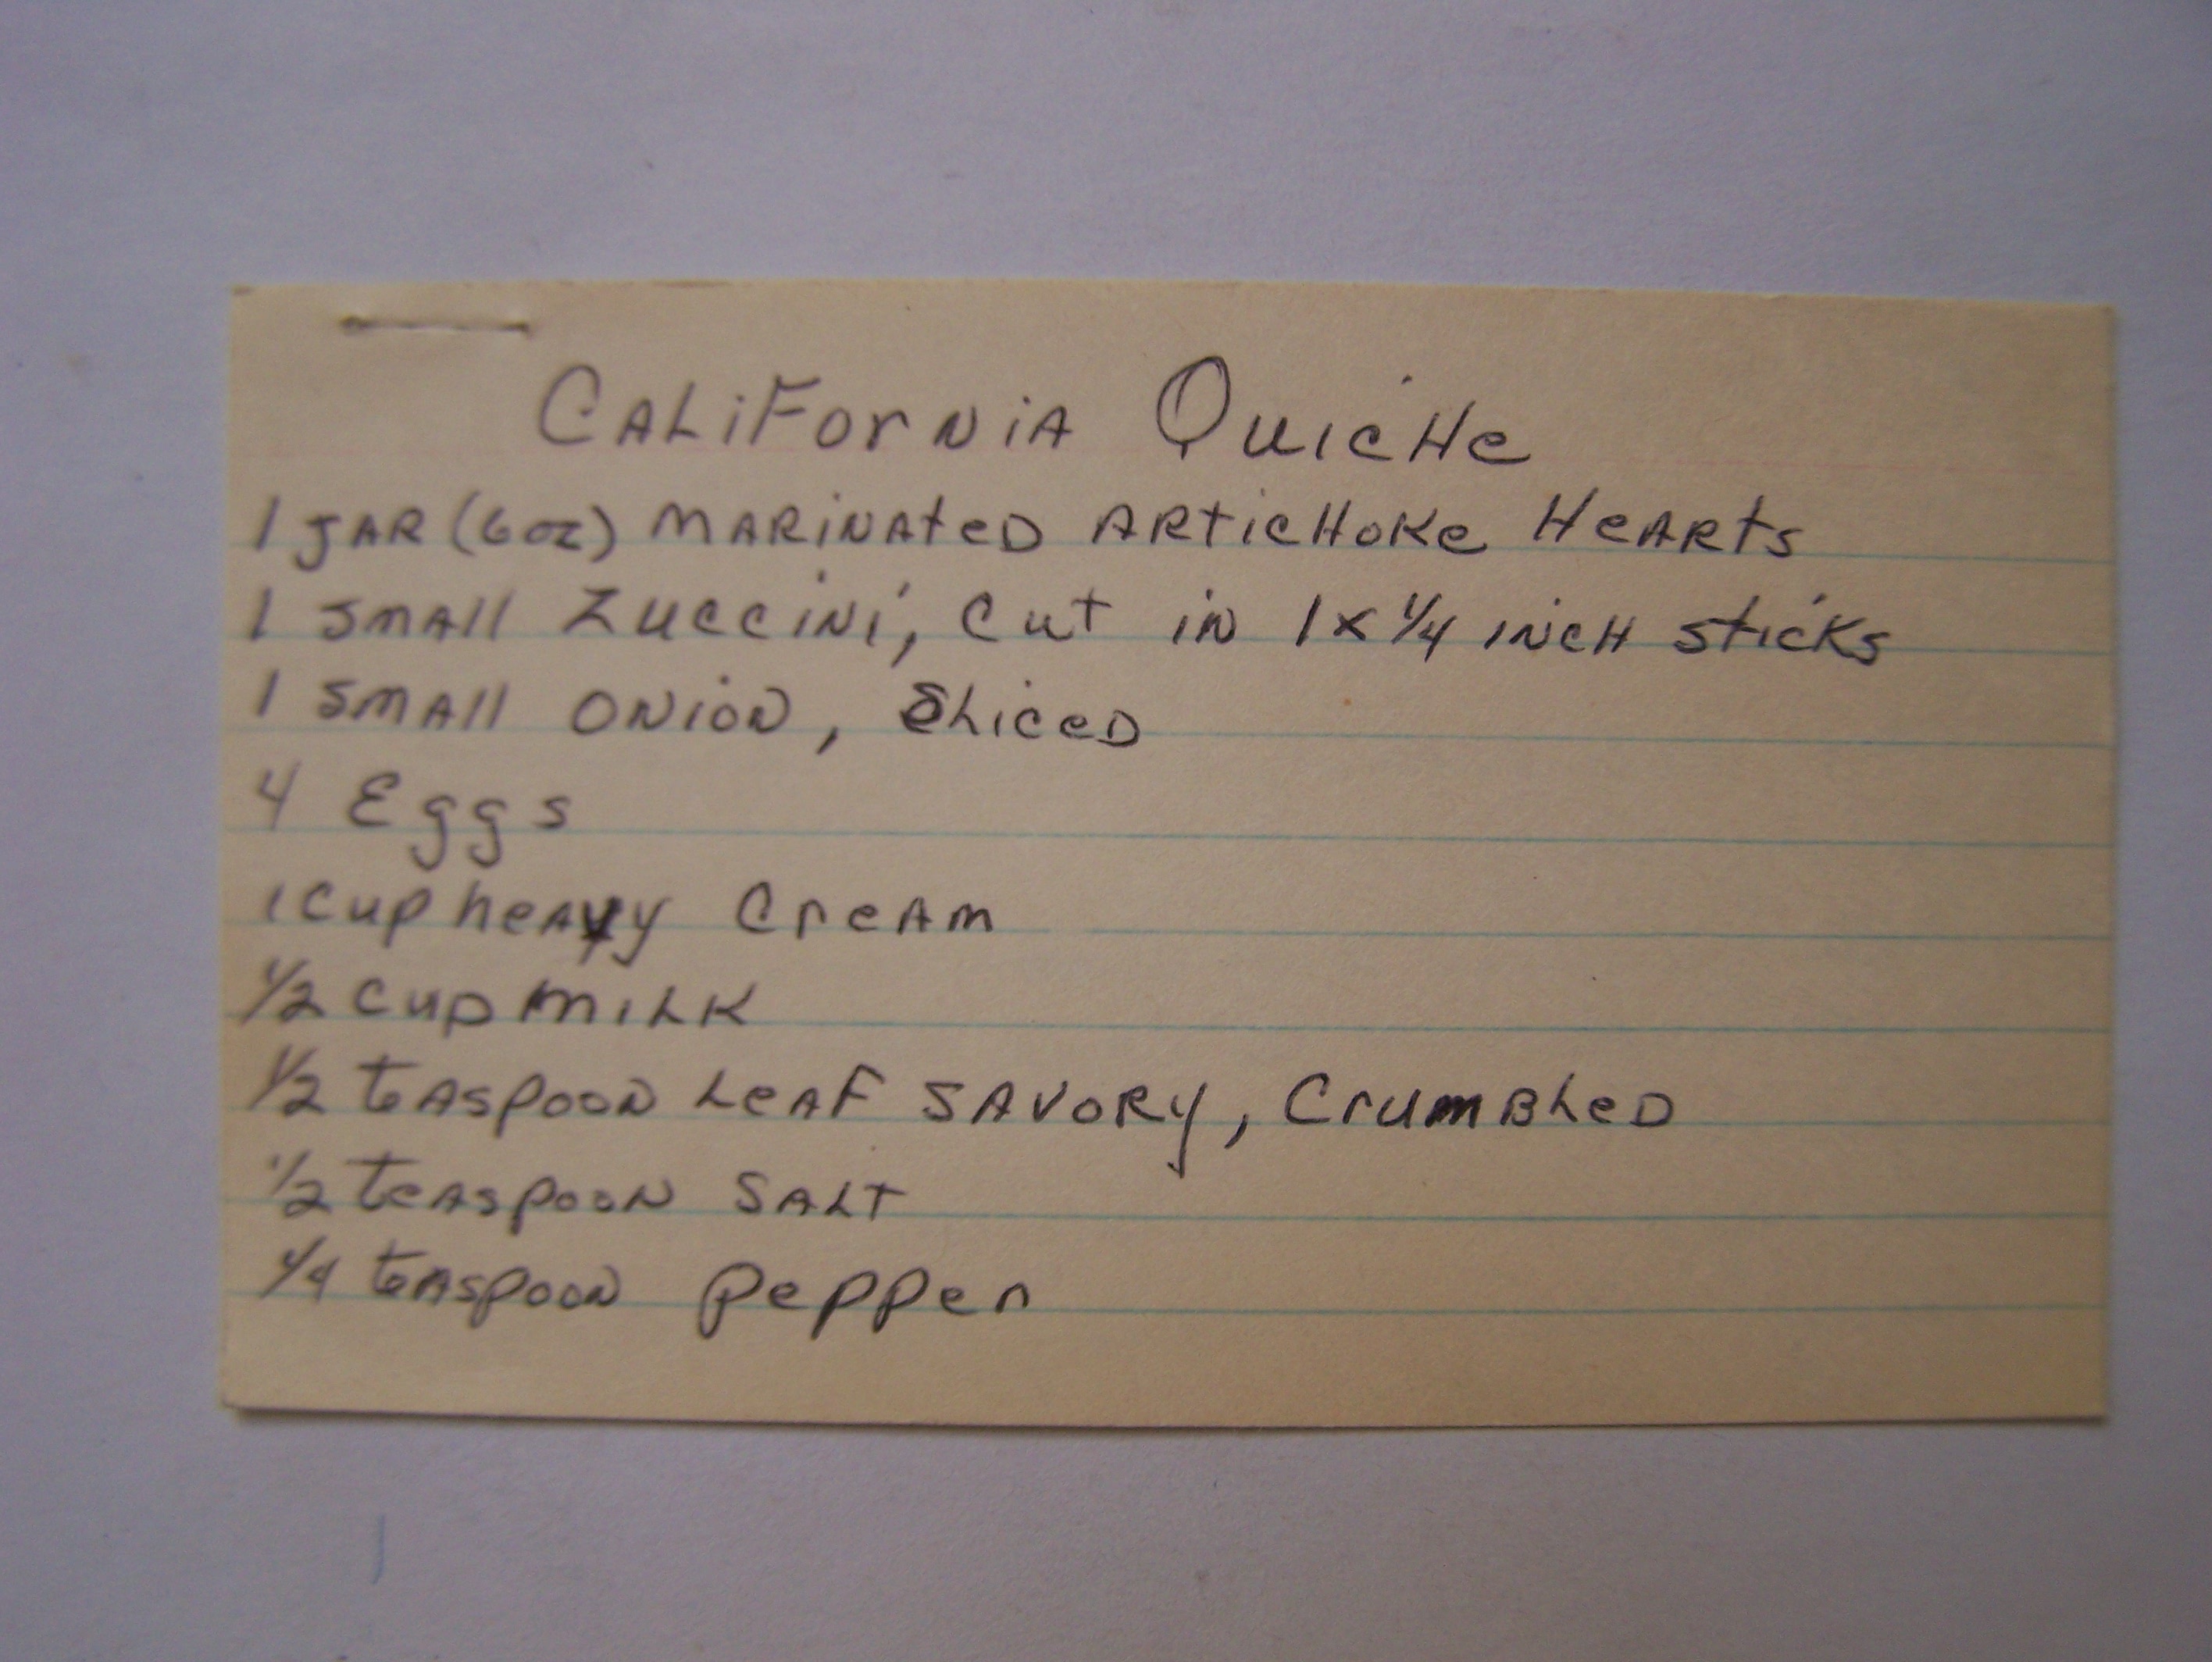 California Quiche
1 jar (6oz) marinated artichoke hearts
1 small zuccini, cut in 1 x 1/4 inch sticks
1 small onion, sliced
4 Eggs
1 cup heavy cream
1/2 cup milk
1/2 teaspoon leaf savory, crumbled
1/2 teaspoon salt
1/4 teaspoon pepper